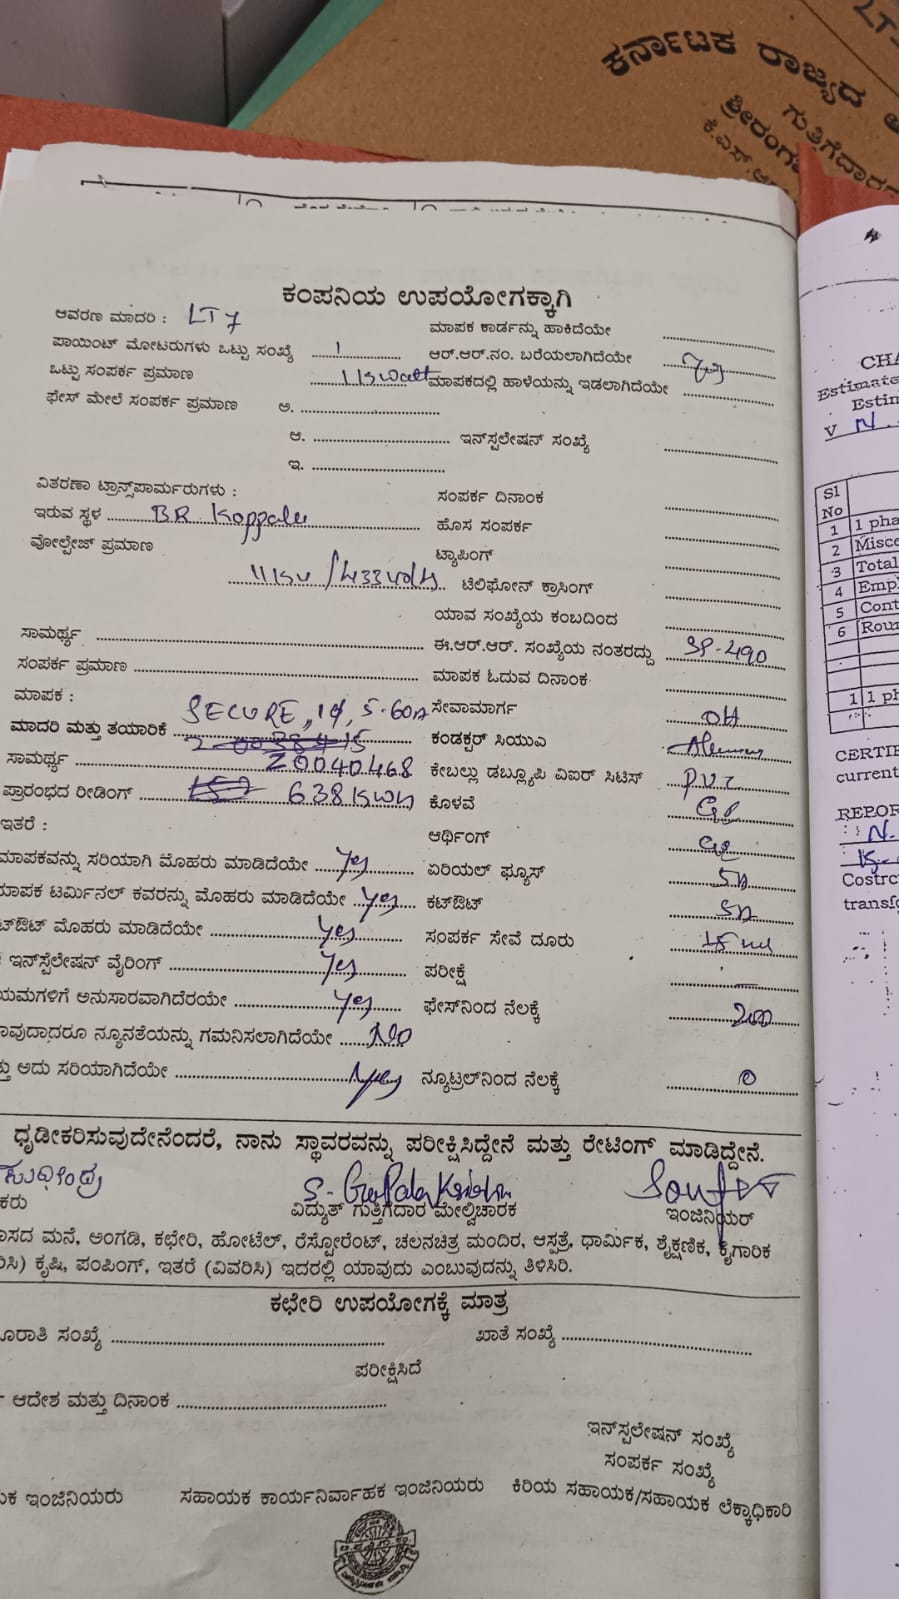 ಕರ್ನಾಟಕ ರಾಜ್ಯದ
ಗುತ್ತಿಗೆದಾರರ
ಶ್ರೀರಂಗ
ಕೆ.ಎಸ್.ಆ
LT-
ಕಂಪನಿಯ ಉಪಯೋಗಕ್ಕಾಗಿ
ಆವರಣ ಮಾದರಿ : LT 7 ಮಾಪಕ ಕಾರ್ಡನ್ನು ಹಾಕಿದೆಯೇ
ಪಾಯಿಂಟ್ ಮೋಟರುಗಳು ಒಟ್ಟು ಸಂಖ್ಯೆ 1 ಆರ್.ಆರ್.ನಂ. ಬರೆಯಲಾಗಿದೆಯೇ
ಒಟ್ಟು ಸಂಪರ್ಕ ಪ್ರಮಾಣ ಮಾಪಕದಲ್ಲಿ ಹಾಳೆಯನ್ನು ಇಡಲಾಗಿದೆಯೇ
ಫೇಸ್ ಮೇಲೆ ಸಂಪರ್ಕ ಪ್ರಮಾಣ ಅ.
ಆ. ಇನ್‌ಸ್ಪಲೇಷನ್ ಸಂಖ್ಯೆ
ಇ.
ವಿತರಣಾ ಟ್ರಾನ್ಸ್‌ಪಾರ್ಮರುಗಳು : ಸಂಪರ್ಕ ದಿನಾಂಕ
ಇರುವ ಸ್ಥಳ BR Koppalu ಹೊಸ ಸಂಪರ್ಕ
ವೋಲ್ಟೇಜ್ ಪ್ರಮಾಣ ಟ್ಯಾಪಿಂಗ್
11kv / 433 volts ಟೆಲಿಫೋನ್ ಕ್ರಾಸಿಂಗ್
ಯಾವ ಸಂಖ್ಯೆಯ ಕಂಬದಿಂದ
ಸಾಮರ್ಥ್ಯ ಈ.ಆರ್.ಆರ್. ಸಂಖ್ಯೆಯ ನಂತರದ್ದು SP-490
ಸಂಪರ್ಕ ಪ್ರಮಾಣ ಮಾಪಕ ಓದುವ ದಿನಾಂಕ
ಮಾಪಕ : ಸೇವಾಮಾರ್ಗ OH
ಮಾದರಿ ಮತ್ತು ತಯಾರಿಕೆ SECURE, 1φ, 5-60A ಕಂಡಕ್ಟರ್ ಸಿಯುಎ
ಸಾಮರ್ಥ್ಯ Z0040468 ಕೇಬಲ್ಲು ಡಬ್ಲ್ಯೂಪಿ ವಿಐರ್ ಸಿಟಿಸ್ P.V.C
ಪ್ರಾರಂಭದ ರೀಡಿಂಗ್ 638 kwh ಕೊಳವೆ GI
ಇತರೆ : ಆರ್ಥಿಂಗ್ GI
ಮಾಪಕವನ್ನು ಸರಿಯಾಗಿ ಮೊಹರು ಮಾಡಿದೆಯೇ Yes ಏರಿಯಲ್ ಫ್ಯೂಸ್ 5A
ಮಾಪಕ ಟರ್ಮಿನಲ್ ಕವರನ್ನು ಮೊಹರು ಮಾಡಿದೆಯೇ Yes ಕಟ್‌ಔಟ್ 5A
ಟ್‌ಔಟ್ ಮೊಹರು ಮಾಡಿದೆಯೇ Yes ಸಂಪರ್ಕ ಸೇವೆ ದೂರು
ಇನ್‌ಸ್ಪೆಲೇಷನ್ ವೈರಿಂಗ್ Yes ಪರೀಕ್ಷೆ —
ಯಮಗಳಿಗೆ ಅನುಸಾರವಾಗಿದೆರಯೇ Yes ಫೇಸ್‌ನಿಂದ ನೆಲಕ್ಕೆ 200
ಾವುದಾದರೂ ನ್ಯೂನತೆಯನ್ನು ಗಮನಿಸಲಾಗಿದೆಯೇ NO
ತ್ತು ಅದು ಸರಿಯಾಗಿದೆಯೇ ನ್ಯೂಟ್ರಲ್‌ನಿಂದ ನೆಲಕ್ಕೆ 0
ಧೃಡೀಕರಿಸುವುದೇನೆಂದರೆ, ನಾನು ಸ್ಥಾವರವನ್ನು ಪರೀಕ್ಷಿಸಿದ್ದೇನೆ ಮತ್ತು ರೇಟಿಂಗ್ ಮಾಡಿದ್ದೇನೆ.
S. Gopala Krishna
ಕರು ವಿದ್ಯುತ್ ಗುತ್ತಿಗೆದಾರ ಮೇಲ್ವಿಚಾರಕ ಇಂಜಿನಿಯರ್
ಾಸದ ಮನೆ, ಅಂಗಡಿ, ಕಛೇರಿ, ಹೋಟೆಲ್, ರೆಸ್ಟೋರೆಂಟ್, ಚಲನಚಿತ್ರ ಮಂದಿರ, ಆಸ್ಪತ್ರೆ, ಧಾರ್ಮಿಕ, ಶೈಕ್ಷಣಿಕ, ಕೈಗಾರಿಕ
ರಿಸಿ) ಕೃಷಿ, ಪಂಪಿಂಗ್, ಇತರೆ (ವಿವರಿಸಿ) ಇದರಲ್ಲಿ ಯಾವುದು ಎಂಬುವುದನ್ನು ತಿಳಿಸಿರಿ.
ಕಛೇರಿ ಉಪಯೋಗಕ್ಕೆ ಮಾತ್ರ
ರಾತಿ ಸಂಖ್ಯೆ ಖಾತೆ ಸಂಖ್ಯೆ
ಪರೀಕ್ಷಿಸಿದೆ
ಆದೇಶ ಮತ್ತು ದಿನಾಂಕ
ಇನ್‌ಸ್ಪಲೇಷನ್ ಸಂಖ್ಯೆ
ಸಂಪರ್ಕ ಸಂಖ್ಯೆ
ಯಕ ಇಂಜಿನಿಯರು ಸಹಾಯಕ ಕಾರ್ಯನಿರ್ವಾಹಕ ಇಂಜಿನಿಯರು ಕಿರಿಯ ಸಹಾಯಕ/ಸಹಾಯಕ ಲೆಕ್ಕಾಧಿಕಾರಿ
CHA
Estimate
Estim
V N.
Sl No
1 1 pha
2 Misce
3 Total
4 Emp
5 Cont
6 Roun
1 1 ph
CERTIF
current
REPOR
N.
Costrc
transfo